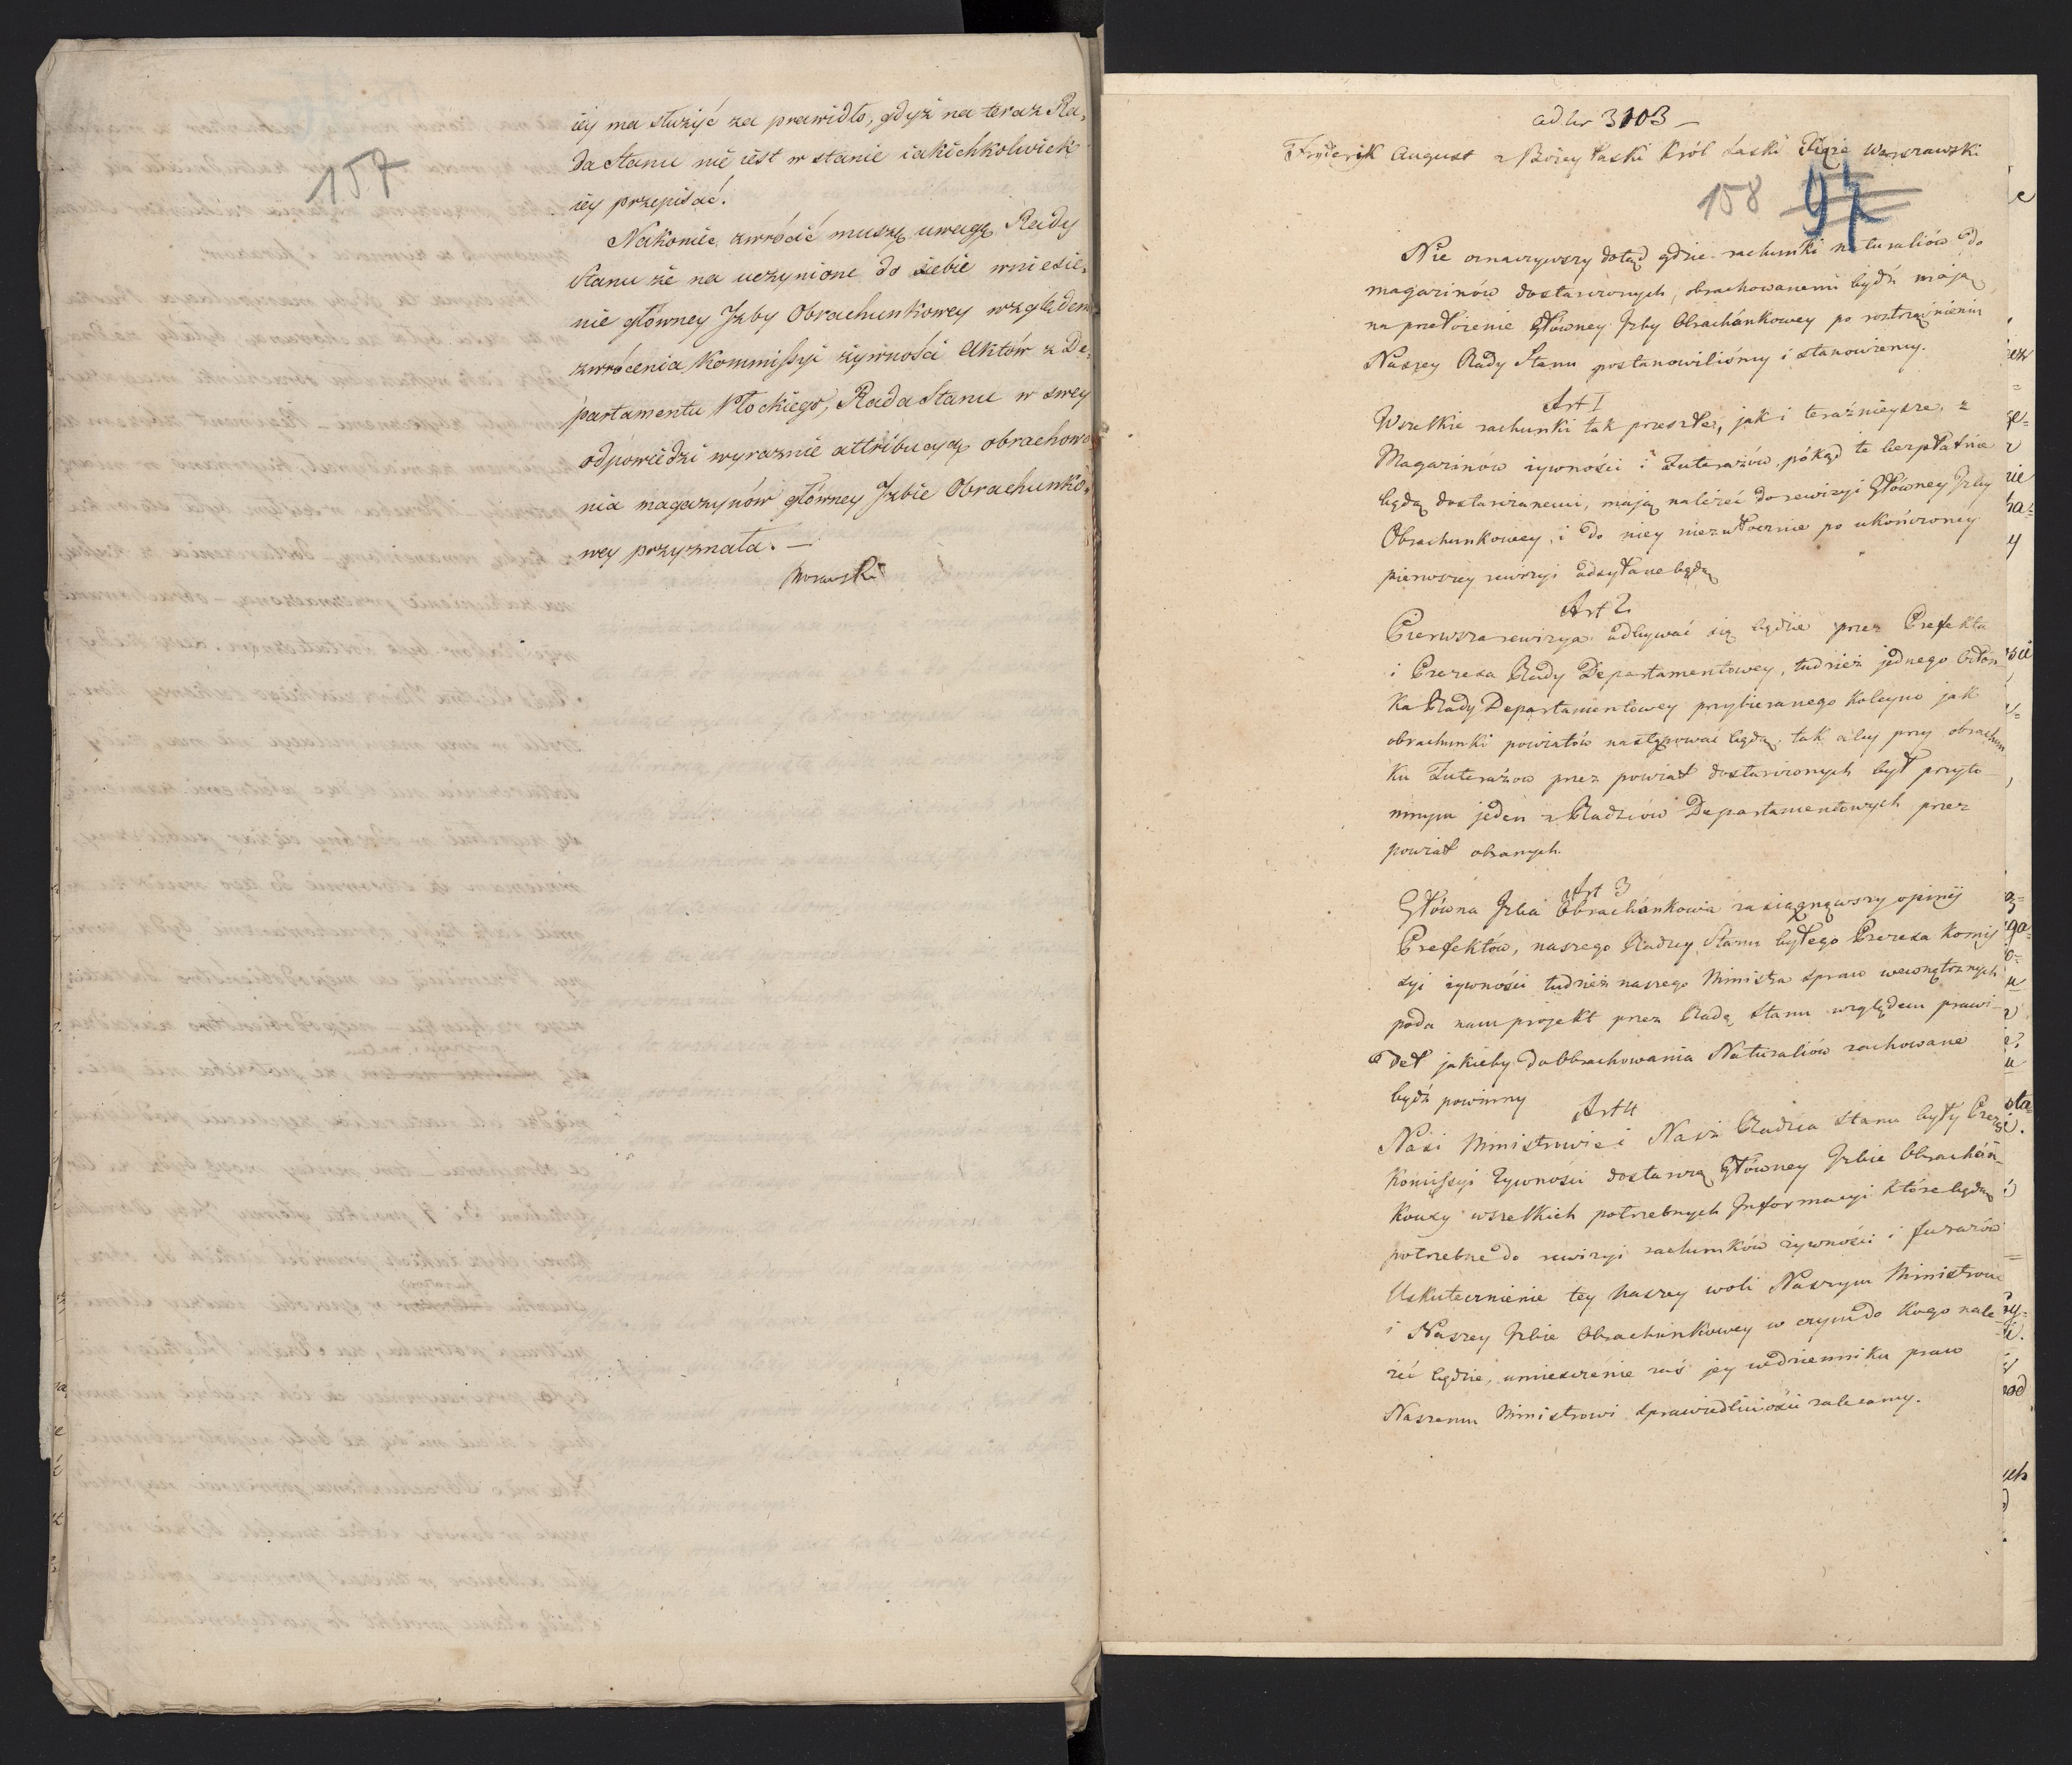 157
iéy ma służyć za prawidło, gdyż na teraz Ra,
da Stanu nie iest w stanie iakichkolwiek
iéy przepisać.
Nakoniéc zwrócić muszę uwagę Rady
Stanu że na uczynione do siebie wniesie,
nie główney Izby Obrachunkowey względem
zwrócenia Kommissyi żywności Aktów z De,
partamentu Płockiego, Rada Stanu w swey
odpowiedzi wyraznie attribucyą obrachowa
nia magazynów główney Izbie Obrachunko,
wey przyznała. —
Morawski
ad Nr 3103 —
Fryderik August z Bożey Łaski Król Saski Xiąże Warszawski
158 97
Nie oznaczywszy dotąd gdzie rachunki naturaliów do
magazinów dostawionych, obrachowanemi bydź mają,
na przełożenie Główney Izby Obrachunkowey po roztrząśnieniu
Naszey Rady Stanu postanowiliśmy i stanowiemy.
Art 1
Wszelkie rachunki tak przeszłe, jak i teraznieysze, z
Magazinów żywności i Furażów, pókąd te bezpłatnie
będą dostawianemi, mają należeć do rewizyi Główney Izby
Obrachunkowey, i do niey niezwłocznie po ukończoney
pierwszey rewizyi odsyłane będą
Art 2
Pierwsza rewizya odbywać się będzie przez Prefekta
i Prezesa Rady Departamentowey, tudzież jednego Człon
ka Rady Departamentowey przybieranego koleyno jak
obrachunki powiatów następować będą, tak aby przy obrachun
ku Furażow przez powiat dostawionych był przyto
mnym jeden z Radzców Departamentowych przez
powiat obranych.
Art 3
Główna Izba Obrachunkowa zasiągnąwszy opinij
Prefektów, naszego Radzcy Stanu byłego Prezesa Komis
syi żywności tudzież naszego Ministra spraw wewnętrznych
poda nam projekt przez Radę Stanu względem prawi
deł jakieby do obrachowania Naturaliów zachowane
bydź powinny
Art 4
Nasi Ministrowie i Nasz Radzca Stanu były Prezes
Komissyi Żywności dostawią Główney Izbie Obrachun
kowey wszelkich potrzebnych Informacyi które będą
potrzebne do rewizyi rachunków żywności i furażów
Uskutecznienie tey naszey woli Naszym Ministrom
i Naszey Izbie Obrachunkowey w czym do kogo nale
żeć będzie, umieszczenie zaś jey w dzienniku praw
Naszemu Ministrowi Sprawiedliwości zalecamy.